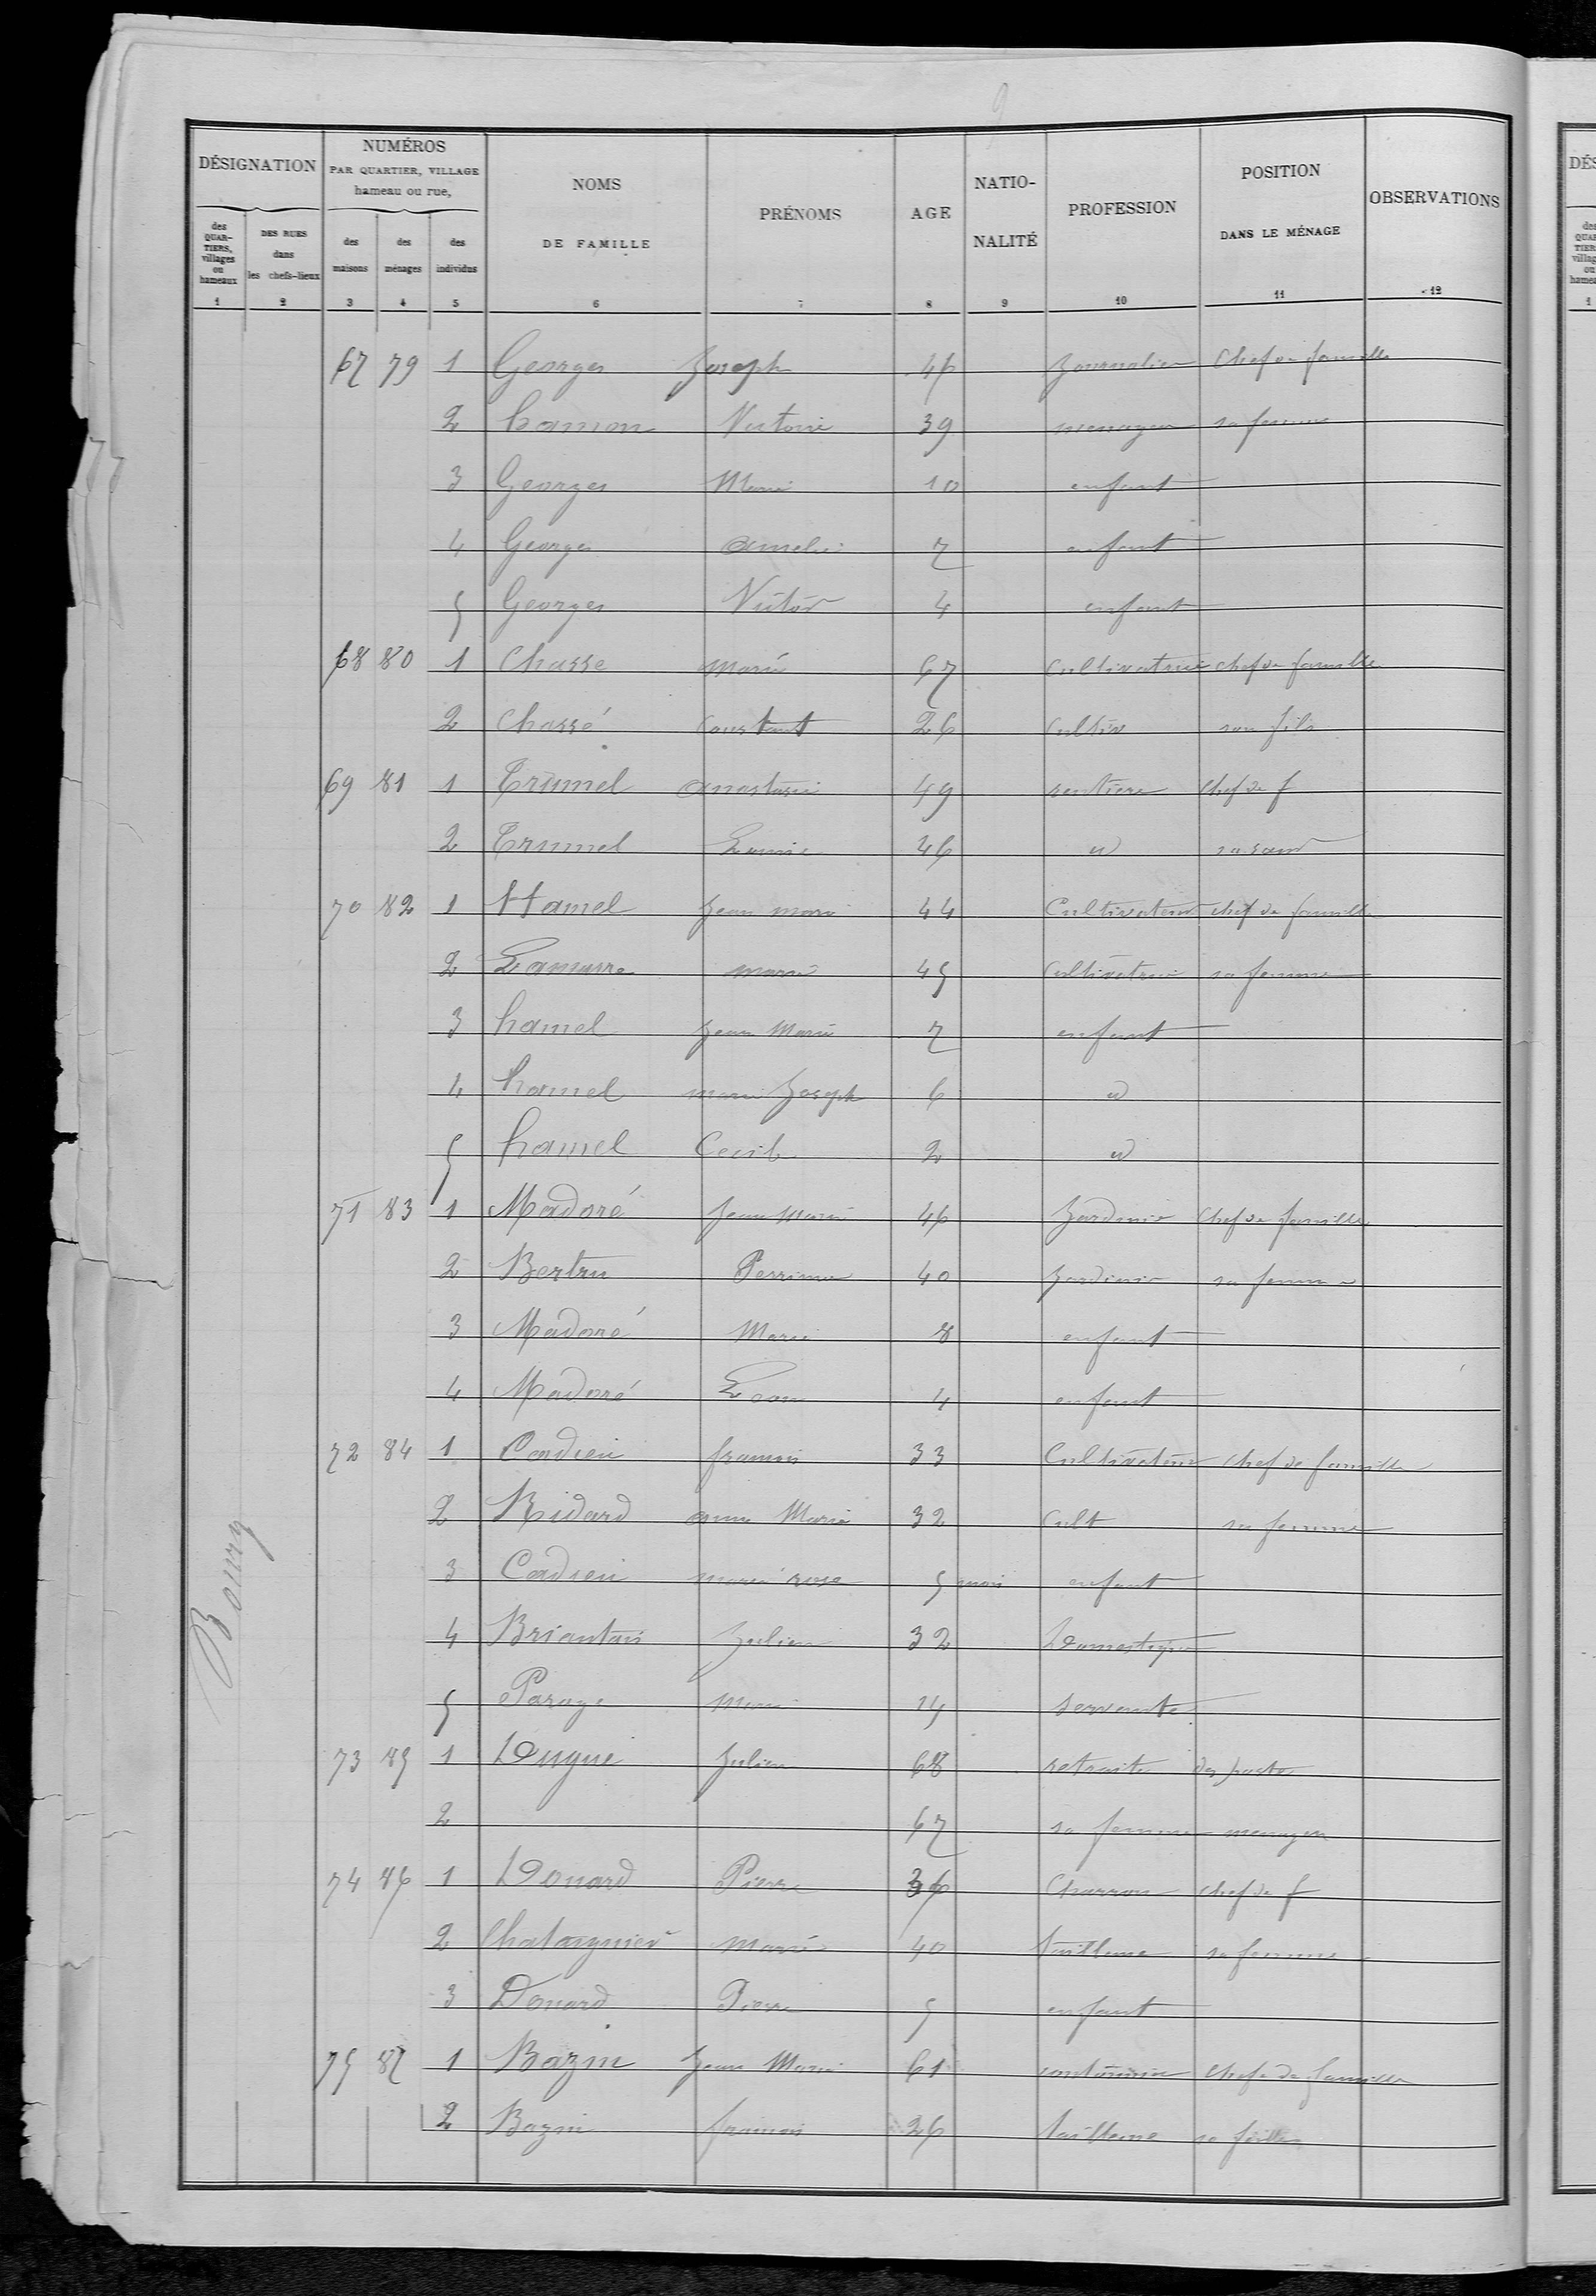 9
DÉSIGNATION NUMÉROS PAR QUARTIER, VILLAGE hameau ou rue, NOMS DE FAMILLE PRÉNOMS AGE NATIO-NALITÉ PROFESSION POSITION DANS LE MÉNAGE OBSERVATIONS
des QUAR-TIERS, villages ou hameaux DES RUES dans les chefs-lieux des maisons des ménages des individus
1 2 3 4 5 6 7 8 9 10 11 12
67 79 1 Georges Joseph 46 Journalier Chef de famille
2 hamon Victoire 39 menagere sa femme
3 Georges Marie 10 enfant
4 Georges amelie 7 enfant
5 Georges Victor 4 enfant
68 80 1 Chasse marie 67 Cultivatrice chef de famille
2 Chassé Constant 26 Cultiv son fils
69 81 1 Trumel anastasie 49 rentiere Chef de f
2 Trumel 46 id sa sœur
70 82 1 Hamel Jean marie 44 Cultivateur chef de famille
2 Lamarre marie 45 Cultivatrice sa femme
3 hamel Jean Marie 7 enfant
4 hamel marie Joseph 6 id
5 hamel Cecile 2 id
71 83 1 Madoré Jean Marie 46 Jardinier Chef de famille
2 Bertru Perrine 40 Jardiniere sa femme
3 Madoré Marie 8 enfant
4 Madoré Leon 4 enfant
72 84 1 Cadieu francois 33 Cultivateur Chef de famille
2 Ridard anne Marie 32 Cult sa femme
3 Cadieu marie rose 5 mois enfant
4 Briantais Julien 32 Domestique
5 Paroye Marie 14 servante
73 85 1 Dugué Julien 68 retraite des postes
2 67 sa femme menagere
74 86 1 Douard Pierre 36 Charron chef de f
2 Chataignier marie 40 tailleuse sa femme
3 Douard Pierre 5 enfant
75 87 1 Bazin Jean Marie 61 Chef de famille
2 Bazin 26 tailleuse sa fille
Bourg